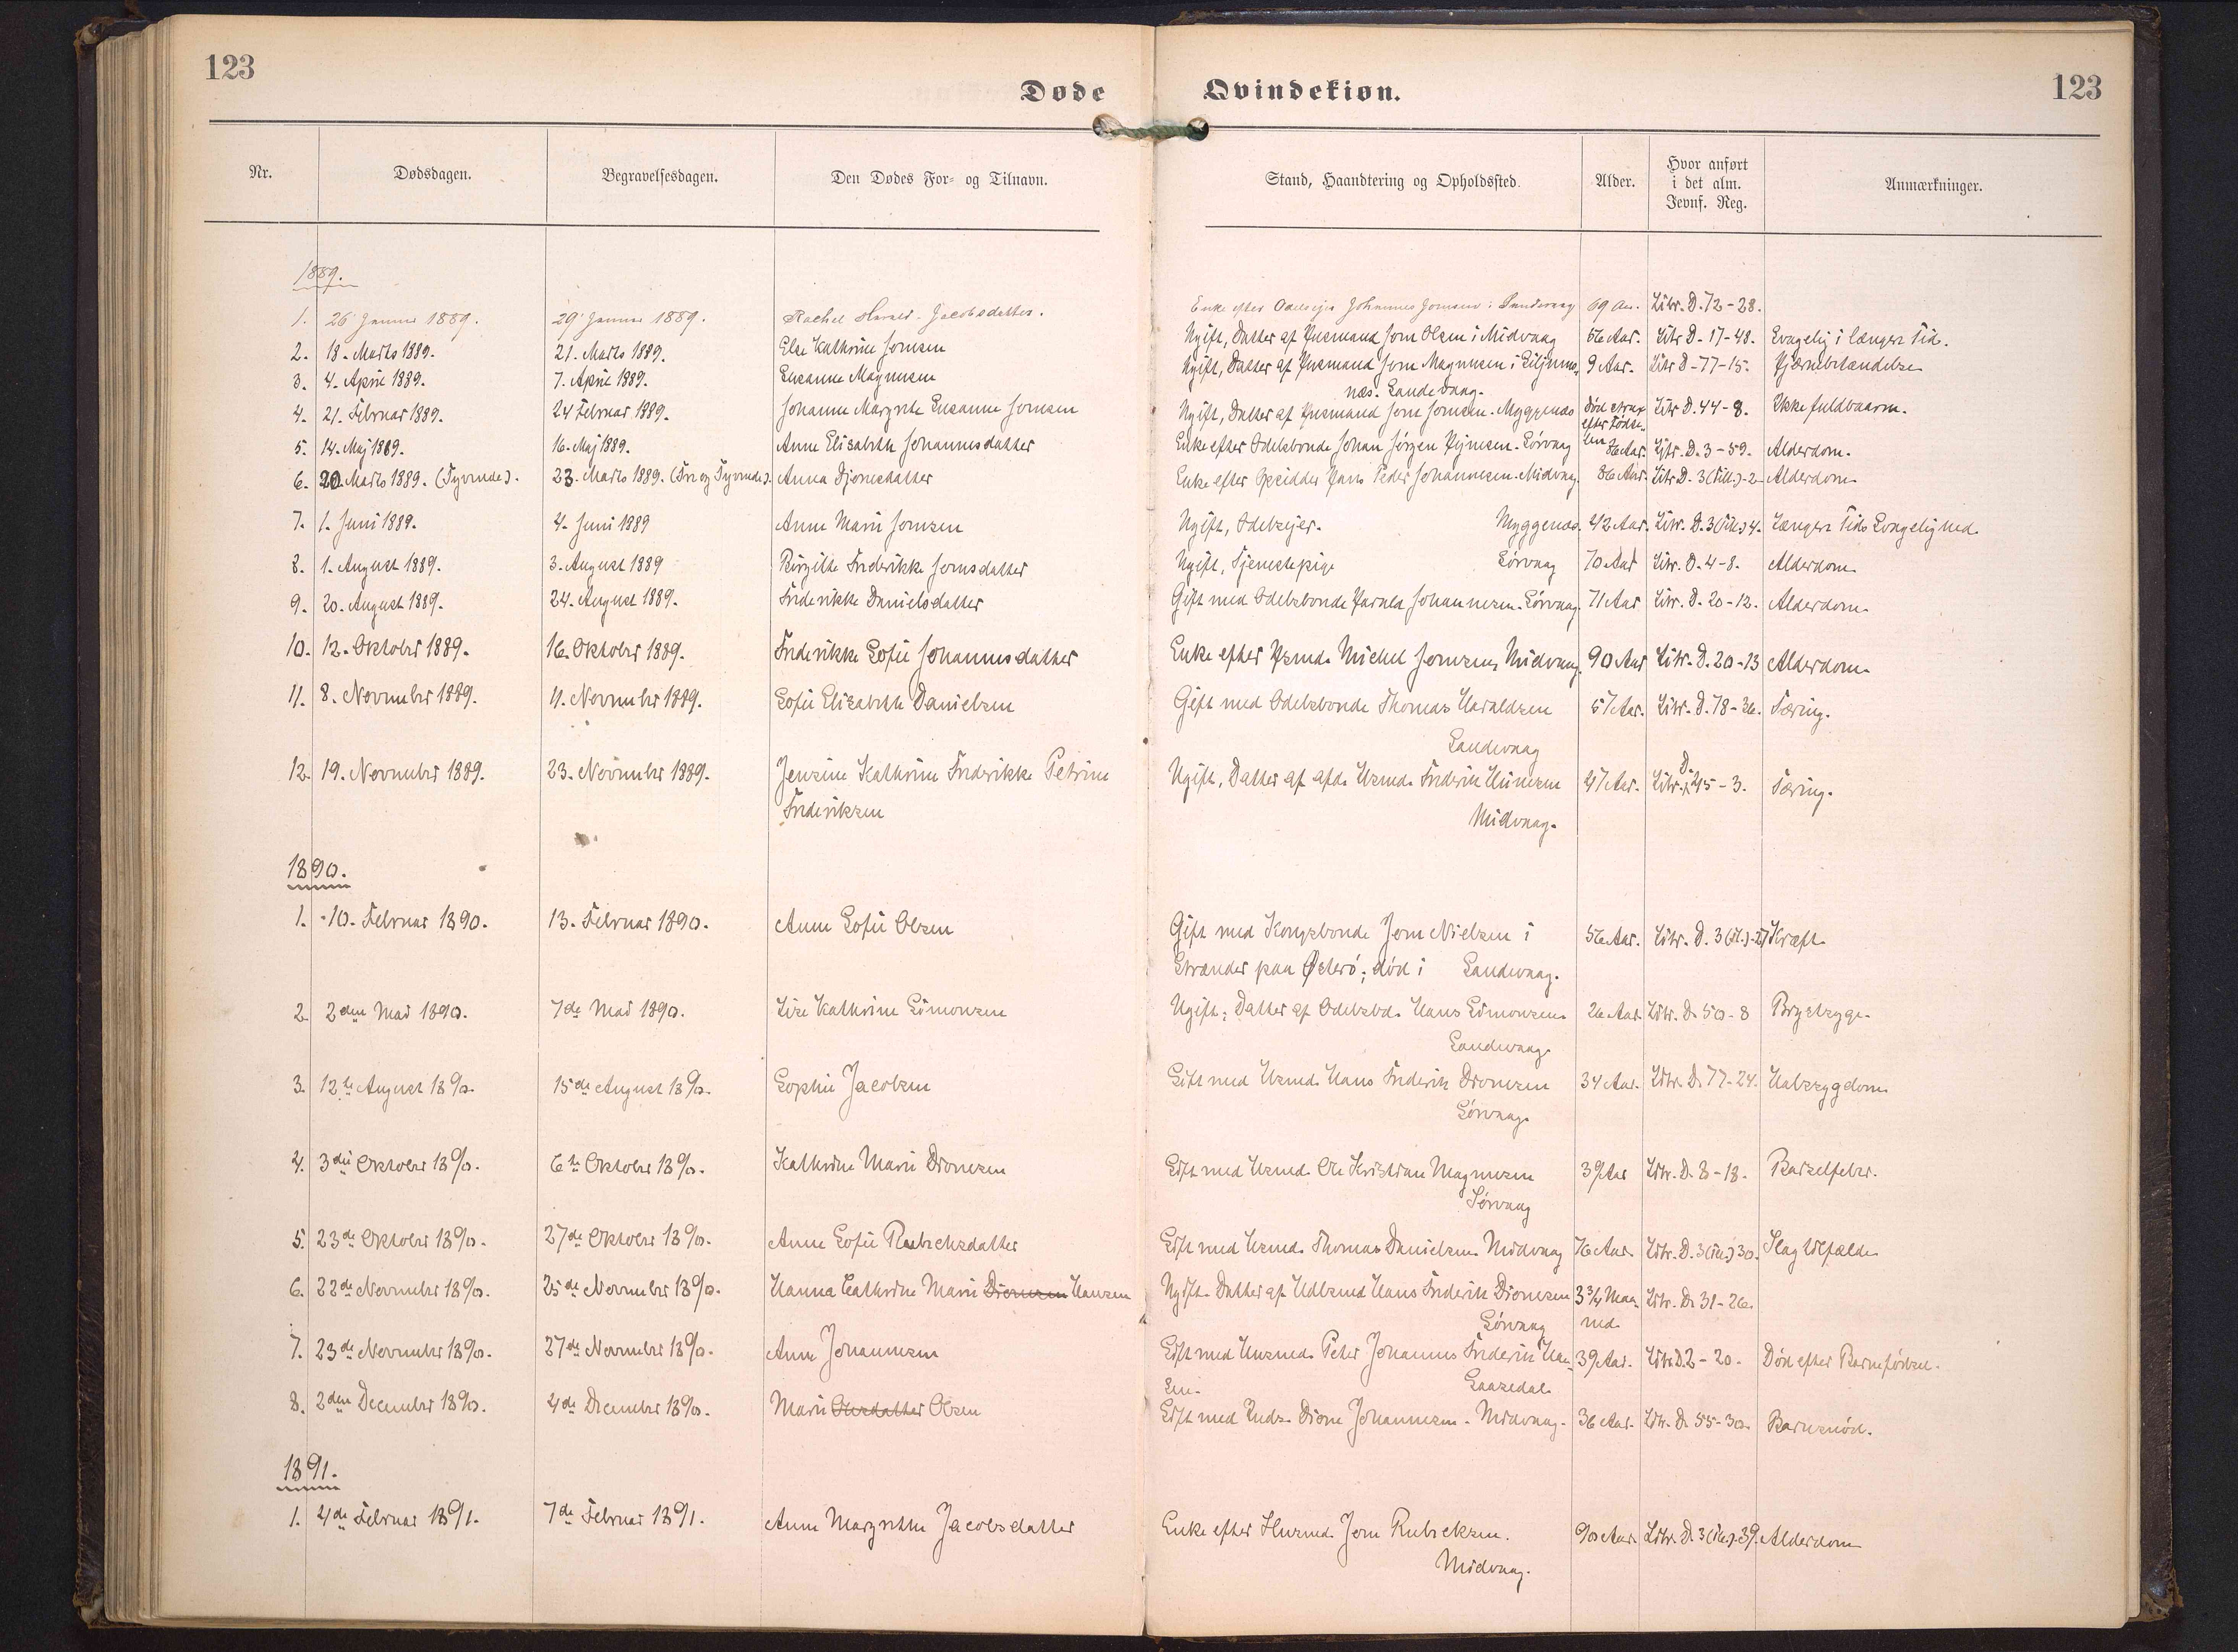 123
Døde
Qvindekiøn.
123
Nr. Dødsdagen. Begravelsesdagen. Den Dødes For- og Tilnavn. Stand, Haandtering og Opholdssted. Alder. Hvor anført i det alm. Jevnf. Reg. Anmærkninger.
1889.
1. 26 Januar 1889. 29 Januar 1889. Rachel Jacobsdatter. Enke efter Odelsejer Johannes Joensen i Sandevaag 69 Aar. Litr. D. 72-28.
2. 18. Marts 1889. 21. Marts 1889. Else Kathrine Joensen Ugift, Datter af Husmand Joen Olsen i Midvaag 56 Aar. Litr D. 17-48. Svagelig i længere Tid.
3. 4. April 1889. 7. April 1889. Susanne Magnusen Ugift, Datter af Husmand Joen Magnusen i 9 Aar. Litr D-77-15. Hjærnebetændelse
næs. Sandevaag.
4. 21. Februar 1889. 24 Februar 1889. Johanne Margrete Susanne Joensen Ugift, Datter af Husmand Joen Joensen. Myggenæs Død strax Litr D. 44-8. Ikke fuldbaaren.
efter Fødse-
5. 14. Maj 1889. 16. Maj 1889. Anne Elisabeth Johannesdatter Enke efter Odelsbonde Johan Jørgen Hejnesen. Sørvaag len 86 Aar. Litr. D. 3-59. Alderdom.
6. 20. Marts 1889. (Tyvende). 23. Marts 1889. (Tre og Tyvende). Anna Djonesdatter Enke efter Opsidder Hans Peder Johannesen. Midvaag 86 Aar. Litr D. 3 (Till.)-2 Alderdom
7. 1. Juni 1889. 4. Juni 1889 Anne Marie Joensen Ugift, Odelsejer. Myggenæs. 42 Aar. Litr. D. 3 (Till.) 4. Længere Tids Svagelighed.
8. 1. August 1889. 3. August 1889 Birgithe Frederikke Joensdatter Ugift, Tjenestepige Sørvaag 70 Aar Litr. D. 4-8. Alderdom
9. 20. August 1889. 24. August 1889. Frederikke Danielsdatter Gift med Odelsbonde Harald Johannesen. Sørvaag. 71 Aar Litr. D. 20-12. Alderdom.
10. 12. Oktober 1889. 16. Oktober 1889. Frederikke Sofie Johannesdatter Enke efter Hsmd. Michel Joensen, Midvaag. 90 Aar Litr. D. 20-13 Alderdom.
11. 8. November 1889. 11. November 1889. Sofie Elisabeth Danielsen Gift med Odelsbonde Thomas Haraldsen 57 Aar. Litr. D. 78-36. Tæring.
Sandevaag
12. 19. November 1889. 23. November 1889. Jensine Kathrine Frederikke Petrine Ugift, Datter af afd. Hsmd. Frederik Heinesen 47 Aar. Litr. D. 45-3. Tæring.
Frederiksen Midvaag.
1890.
1. 10. Februar 1890. 13. Februar 1890. Anne Sofie Olsen Gift med Kongsbonde Joen Nielsen i 56 Aar. Litr. D. 3 (Til.)-27 Kræft
Strænder paa Østerø; død i Sandevaag.
2. 2den Mai 1890. 7de Mai 1890. Lise Kathrine Simonsen Ugift; Datter af Odelsbd. Hans Simonsen 26 Aar. Litr. D. 50-8 Brystsyge.
Sandevaag.
3. 12te August 1890. 15de August 1890. Sophie Jacobsen Gift med Hsmd. Hans Frederik Dionesen 34 Aar. Litr. D. 77-24. Halssygdom
Sørvaag.
4. 3die Oktober 1890. 6te Oktober 1890. Kathrine Marie Dionesen Gift med Hsmd. Ole Kristian Magnusen 39 Aar Litr. D. 8-18. Barselfeber.
Sørvaag
5. 23de Oktober 1890. 27de Oktober 1890. Anne Sofie Rubeksdatter Gift med Hsmd. Thomas Danielsen. Midvaag 76 Aar. Litr. D. 3 (Till.) 30. Slagtilfælde
6. 22de November 1890. 25de November 1890. Hanna Cathrine Marie Dionesen Hansen Ugift. Datter af Hsmd Hans Frederik Dionesen 3 3/4 Maa- Litr. D. 31-26.
Sørvaag ned.
7. 23de November 1890. 27de November 1890. Anne Johannesen Gift med Husmd. Peter Johannes Frederik Han- 39 Aar. Litr. D. 2-20. Død efter Barnefødsel.
sen. Gaasedal
8. 2den December 1890. 4de December 1890. Marie Olesdatter Olsen Gift med Dione Johannesen. Midvaag. 36 Aar. Litr. D. 55-30. Barnsnød.
1891.
1. 4de Februar 1891. 7de Februar 1891. Anne Margrethe Jacobsdatter Enke efter Husmd. Joen Rubeksen. 90 Aar. Litr. D. 3 (Till.)-39. Alderdom
Midvaag.